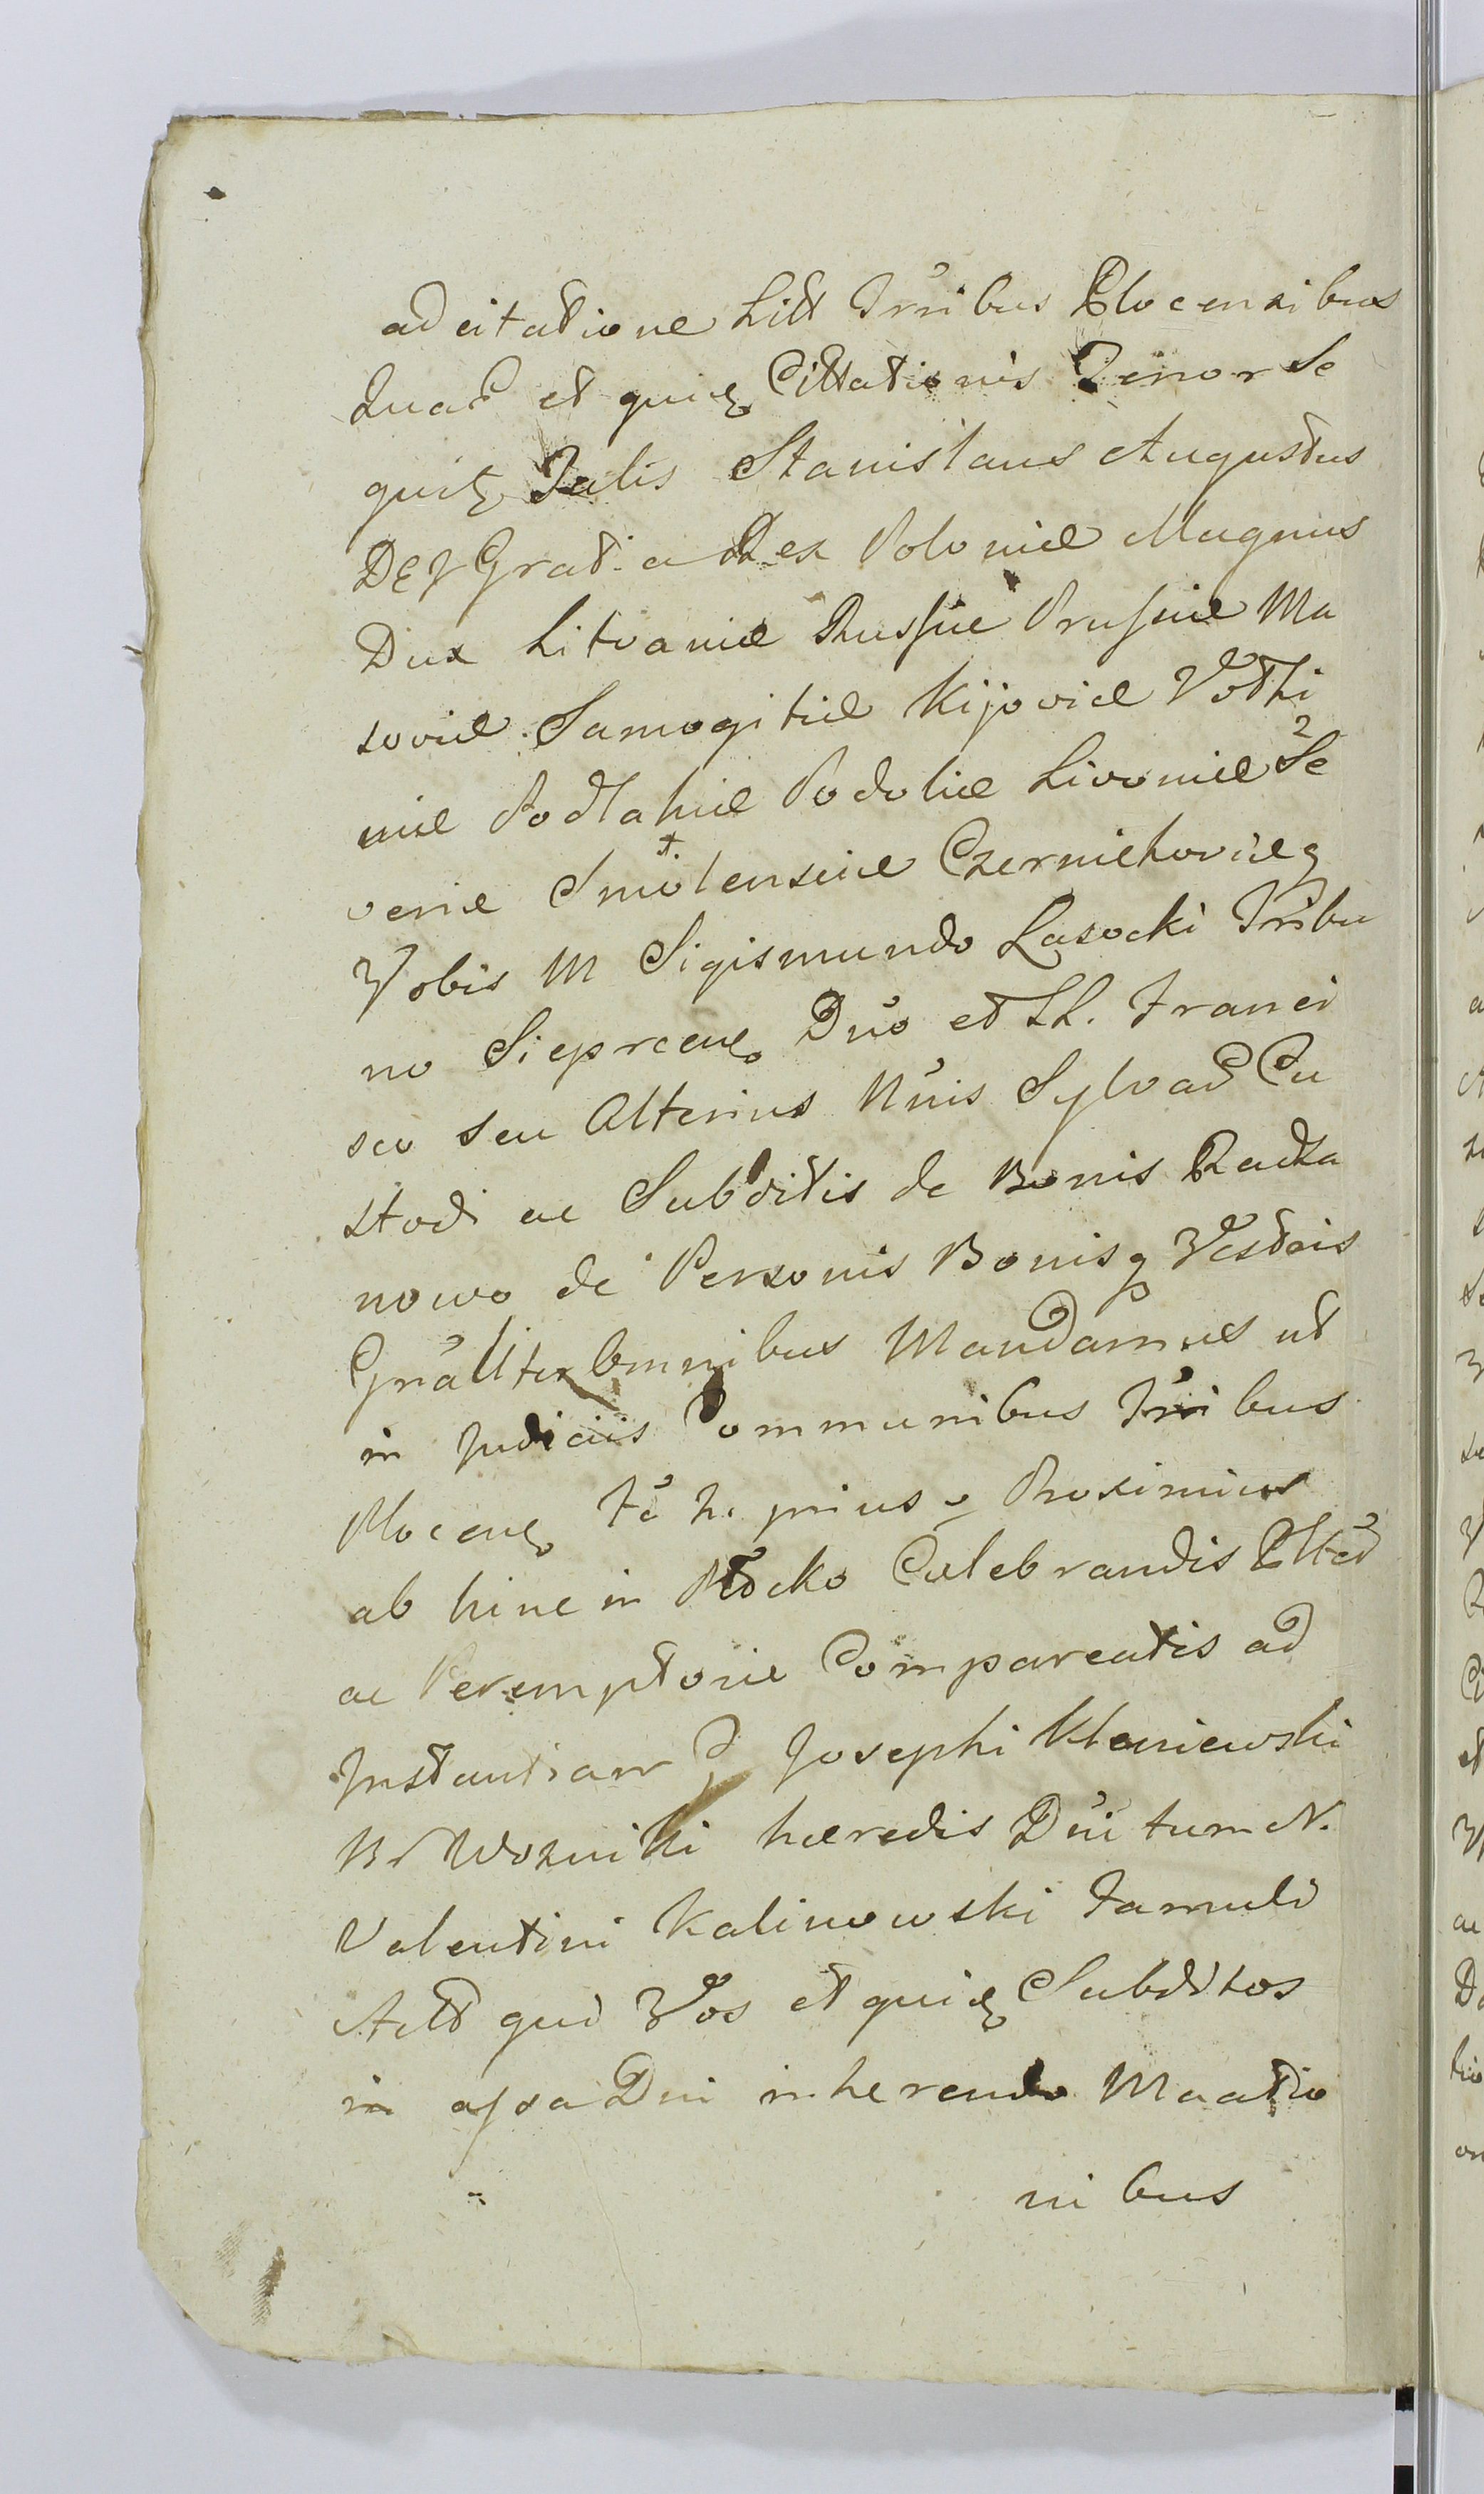 adcitatione Litt Trribus Plocensibus
Quar et quidz Cittationis Tenor Se
quitz Talis Stanislaus Augustus
DEJ Gratia Rex Poloniæ Magnus
Dux Litvaniæ Russiæ Prussiæ Ma
soviæ Samogitiæ Kijoviæ Vołhi
niæ Podlahiæ Podoliæ Livoniæ Se
veriæ Smolensciæ Czerniehoviæq
Vobis M Sigismundo Lasocki Tribu
no Sieprcen Dno et LL. Franci
sco seu Alterius Nnis Sylvar Cu
stodi ac Subditis de Bonis Racza
nowo de Personis Bonisq Vestris
Gnaliter Omnibus Mandamus ut
in Judiciis Communibus Trribus
Plocen prius Proximius
ab hinc in Płocko Cœlebrandis
ac Peremptorie Compareatis ad
Instantiam G Josephi Kleniewski
B Wozniki hæredis Dni tum N.
Valentini Kalinowski Famuli
Actt qui Vos et quidz Subditos
in assa Dni inherendo Maatio
nibus